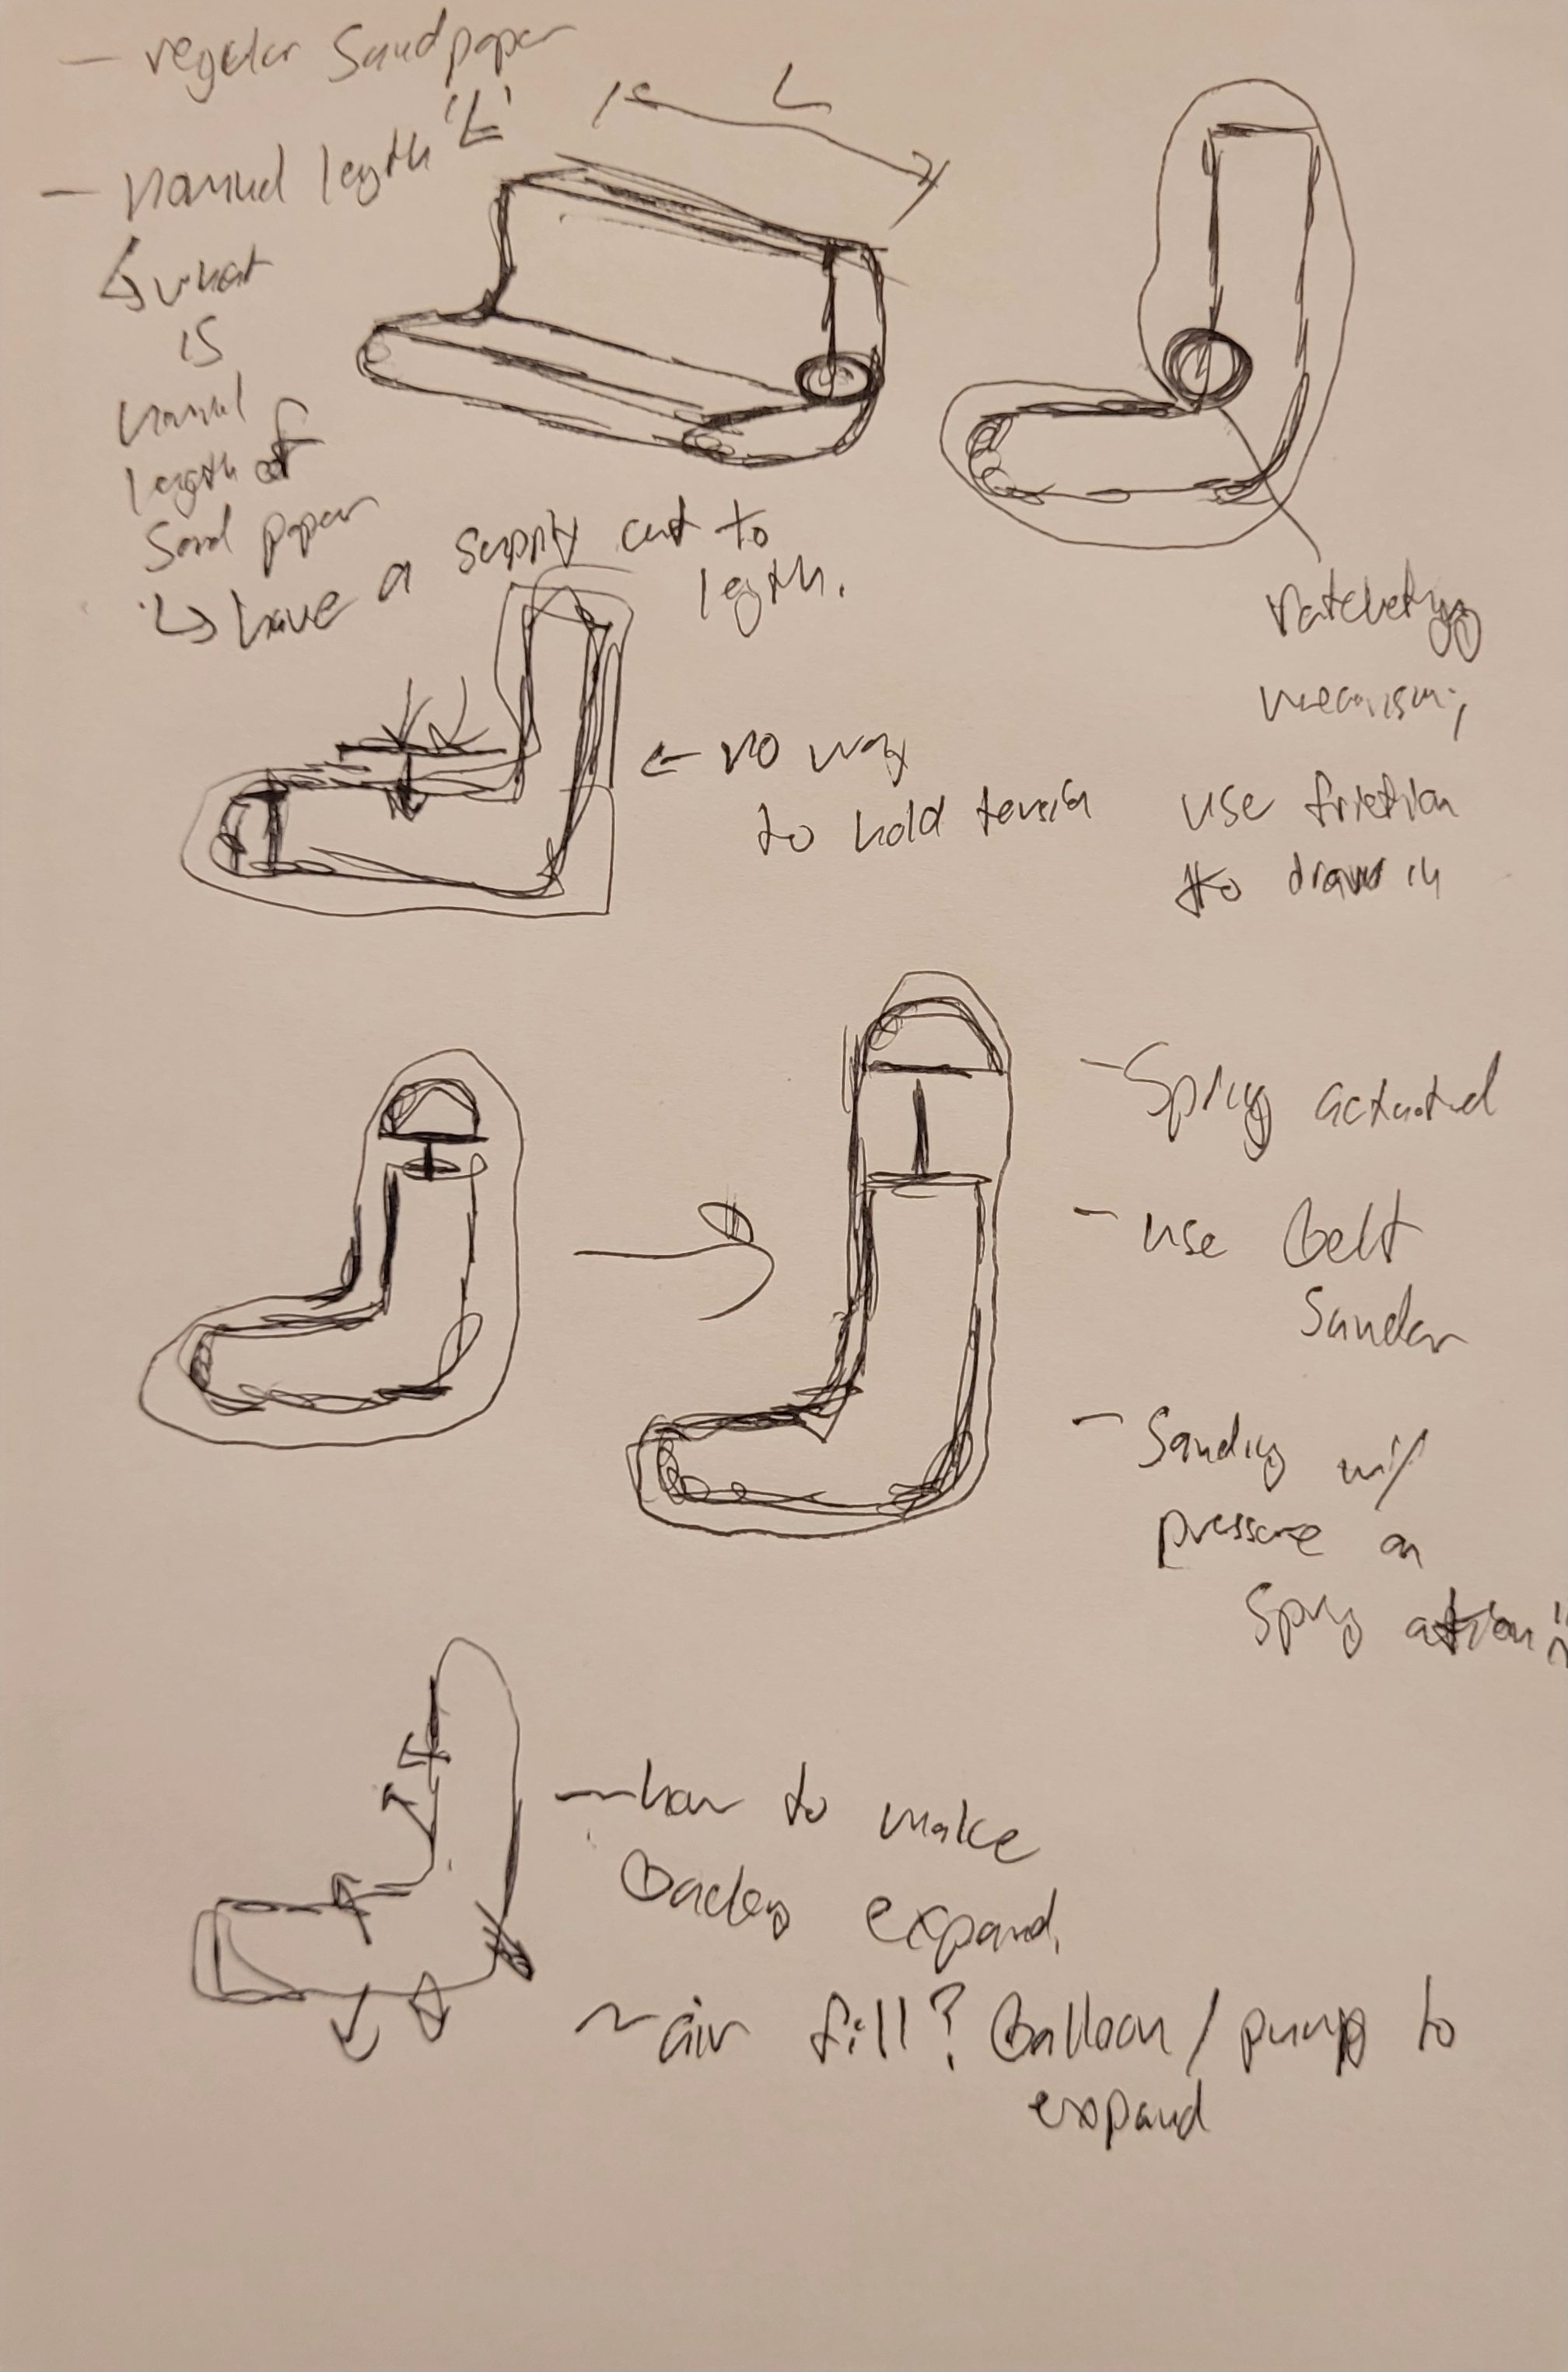 - regular Sandpaper
- normal length 'L'
L
↳ what
is
normal
length of
Sand paper
↳ have a supply cut to
length.
ratcheting
mechanism,
use friction
to draw in
← no way
to hold tension
- Spring actuated
- use belt
Sander
- Sanding w/
pressure on
Spring action
- how to make
expand.
~ air fill? Balloon / pump to
expand